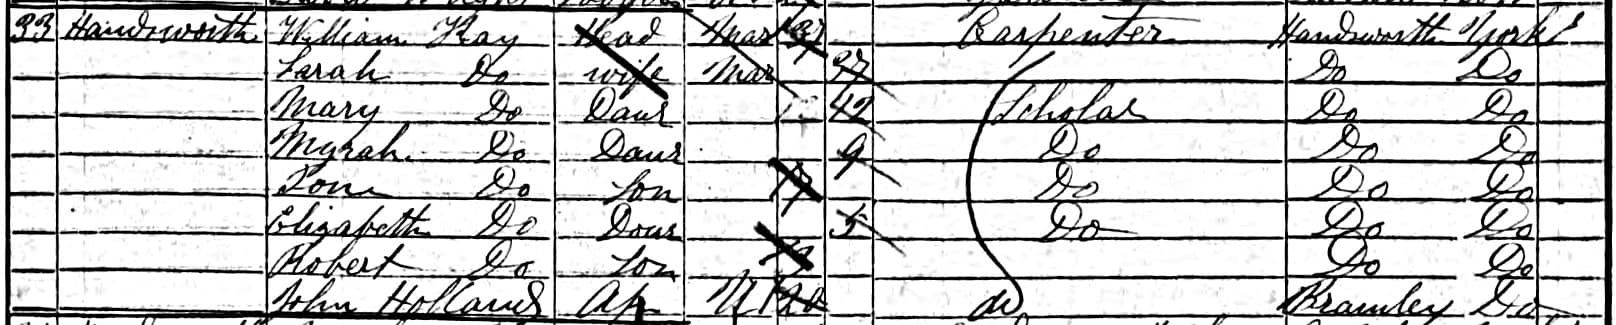 33 Handsworth William Kay Head Mar 37 Carpenter Handsworth Yorks
Sarah Do wife Mar 37 Do Do
Mary Do Daur 12 Scholar Do Do
Myrah Do Daur 9 Do Do Do
Tom Do Son 7 Do Do Do
Elizabeth Do Daur 5 Do Do Do
Robert Do Son Do Do
John Holland Ap U 20 do Bramley Do